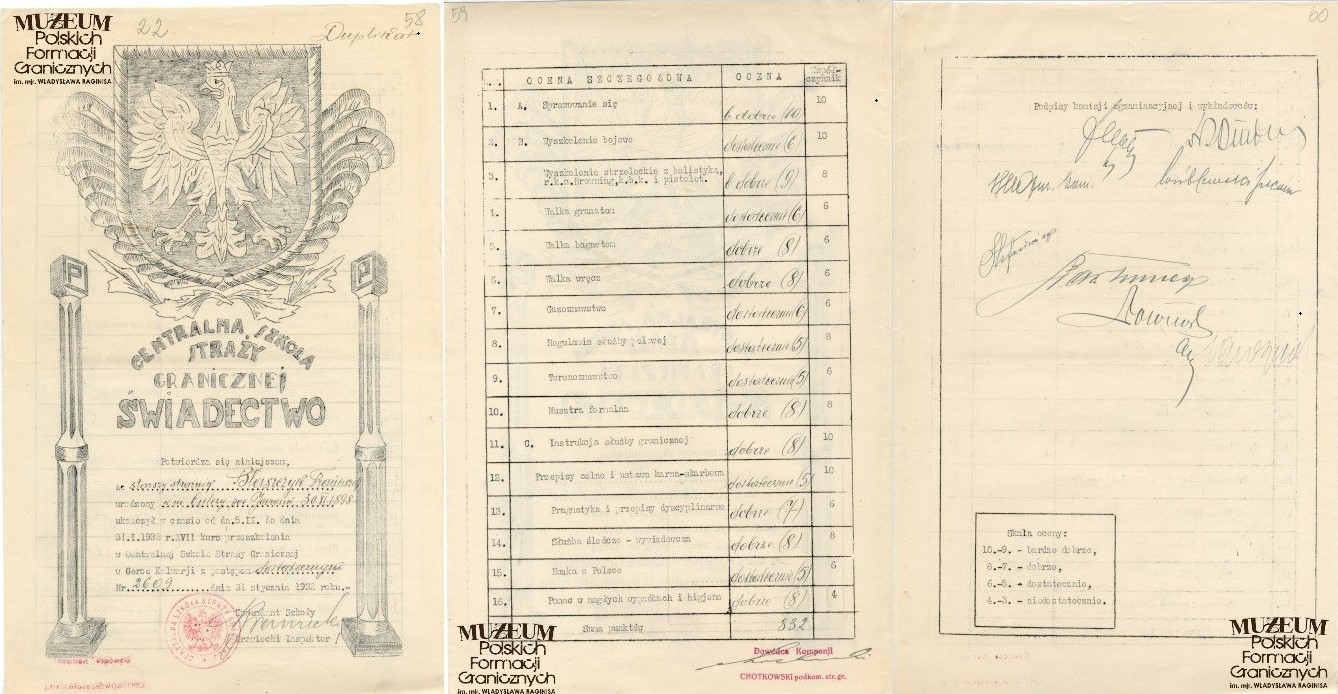 MUZEUM
Polskich
Formacji
Granicznych
im. mjr. WŁADYSŁAWA RAGINISA
22
58
Duplikat
P
P
CENTRALNA SZKOŁA
STRAŻY
GRANICZNEJ
ŚWIADECTWO
Potwierdza się niniejszem,
że starszy strażnik Błaszczyk
urodzony 30.XI.1898
ukończył w czasie od dn.5.IX. do dnia
31.I.1932 r.XVII kurs przeszkolenia
w Centralnej Szkole Straży Granicznej
w Górze Kalwarji z postępem dostatecznym
Nr. 2609 dnia 31 stycznia 1932 roku.-
Komendant Szkoły
Inspektor
59
OCENA SZCZEGÓŁOWA OCENA Współ-
czynnik
1. A. Sprawowanie się b dobrze (10) 10
2. B. Wyszkolenie bojowe dostatecznie (6) 10
3. Wyszkolenie strzeleckie z balistyką,
r.k.m.Browning,k.b.k. i pistolet. b dobrze (9) 8
4. Walka granatem dostatecznie (6) 6
5. Walka bagnetem dobrze (8) 6
6. Walka wręcz dobrze (8) 6
7. Gazoznawstwo dostatecznie (6) 6
8. Regulamin służby polowej dostatecznie (5) 8
9. Terenoznawstwo dostatecznie (5) 6
10. Musztra formalna dobrze (8) 8
11. C. Instrukcja służby granicznej dobrze (8) 10
12. Przepisy celne i ustawa karno-skarbowa dostatecznie (5) 10
13. Pragmatyka i przepisy dyscyplinarne dobrze (7) 6
14. Służba śledczo - wywiadowcza dobrze (8) 8
15. Nauka o Polsce dostatecznie (5) 6
16. Pomoc w nagłych wypadkach i higjena dobrze (8) 4
Suma punktów 832
Dowódca Kompanji
CHOTKOWSKI podkom. str. gr.
MUZEUM
Polskich
Formacji
Granicznych
im. mjr. WŁADYSŁAWA RAGINISA
60
Podpisy komisji egzaminacyjnej i wykładowców:
Skala oceny:
10.-9. - bardzo dobrze,
8.-7. - dobrze,
6.-5. - dostatecznie,
4.-3. - niedostatecznie.
MUZEUM
Polskich
Formacji
Granicznych
im. mjr. WŁADYSŁAWA RAGINISA